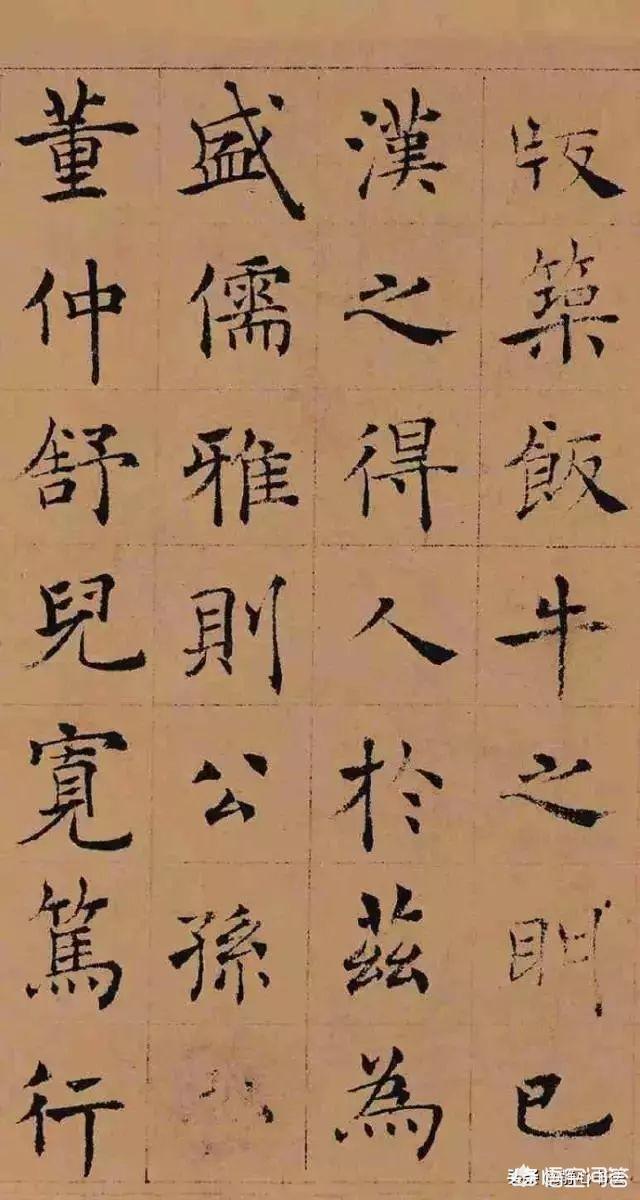 版築飯牛之明已
漢之得人於茲為
盛儒雅則公孫
董仲舒兒寬篤行
悟空问答